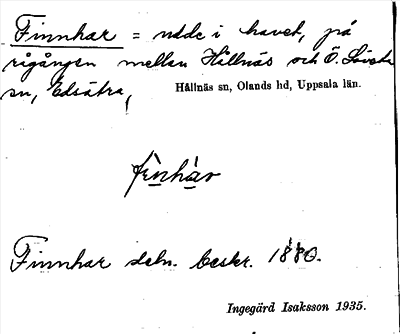 Finnhar = udde i havet, på
rågången mellan Hållnäs och Ö. Lövsta
sn, Edsätra,
Hållnäs sn, Olands hd, Uppsala län.
fìnhàr
Finnhar seln. beskr. 1880.
Ingegärd Isaksson 1935.